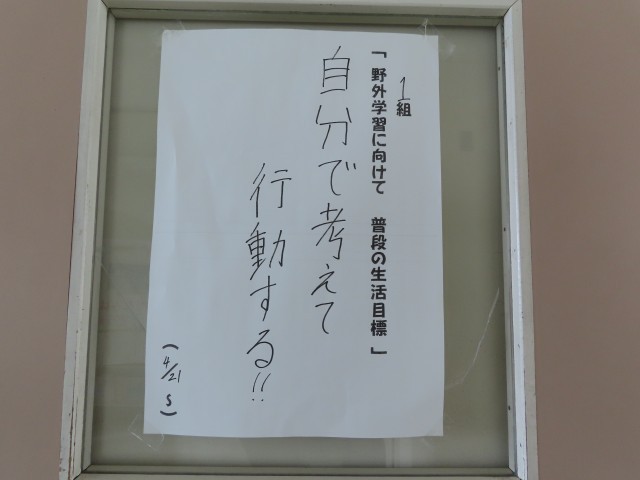 1組
「野外学習に向けて　普段の生活目標」
自分で考えて
行動する!!
(4/21 S)